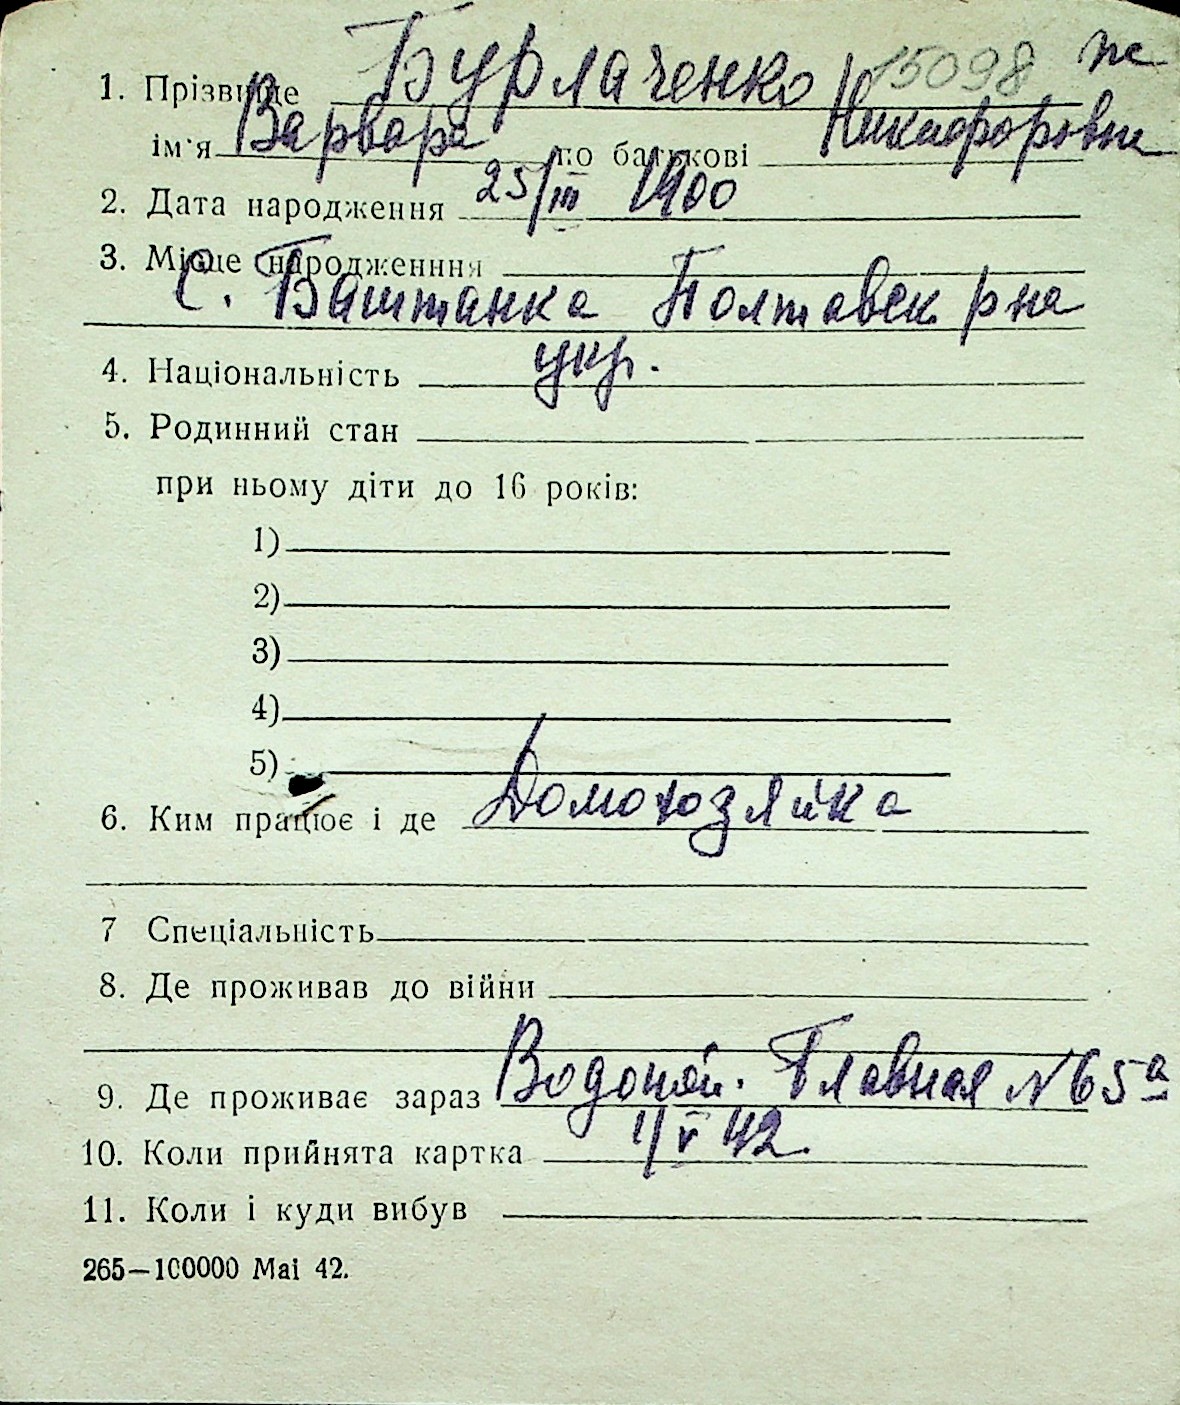 15098 ж
1. Прізвище Бурлаченко
ім'я Варвара по батькові Никифоровна
2. Дата народження 25/III 1900
3. Місце народженння
с. Баштанка Полтавск р на
4. Національність укр.
5. Родинний стан
при ньому діти до 16 років:
1)
2)
3)
4)
5)
6. Ким працює і де Домохозяйка
7 Спеціальність
8. Де проживав до війни
9. Де проживає зараз Водопой. Главная №65а
10. Коли прийнята картка 1/V 42.
11. Коли і куди вибув
265—100000 Mai 42.